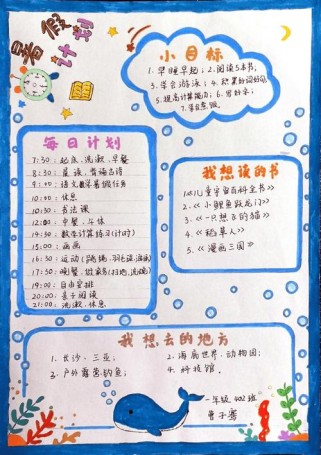 暑假计划
小目标
1.早睡早起；2.阅读5本书；
3.学会游泳；4.积累好词好句
5.提高计算能力；6.练好字；
7.学会烹饪
每日计划
7:30：起床、洗漱、早餐
8:30：晨读、背诵古诗
9:00：语文暑假任务
10:00：休息
10:30：书法课
12:00：中餐、午休
14:30：数学计算练习(计时)
15:00：画画
16:30：运动(跳绳、羽毛球、游泳)
17:30：晚餐、做家务(扫地、洗碗)
19:00：自由安排
20:00：亲子阅读
21:00：洗漱、休息
我想读的书
1.《儿童宇宙百科全书》
2.《小鲤鱼跃龙门》
3.《一只想飞的猫》
4.《稻草人》
5.《漫画三国》
我想去的地方
1.长沙、三亚；2.海底世界、动物园；
3.户外露营、钓鱼；4.科技馆.
一年级 402班
曹子骞